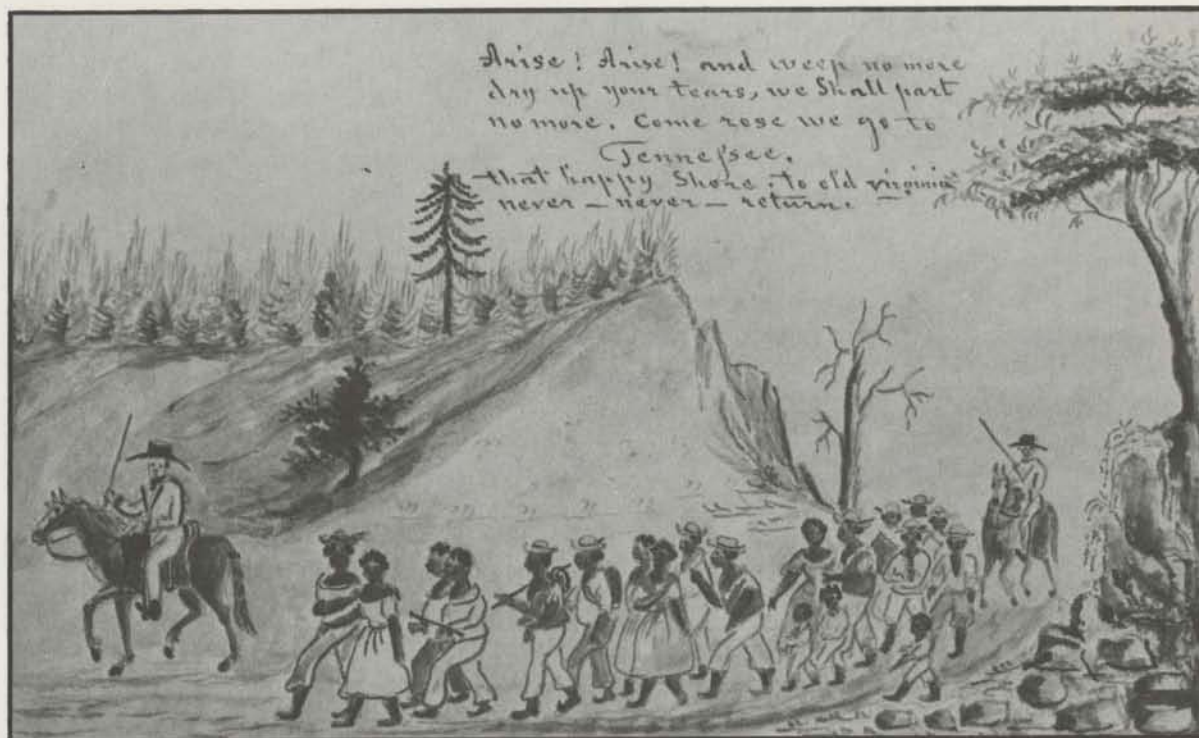 Arise! Arise! and weep no more
dry up your tears, we Shall part
no more. Come rose we go to
Tennessee.
that happy Shore. to old virginia
never – never – return.